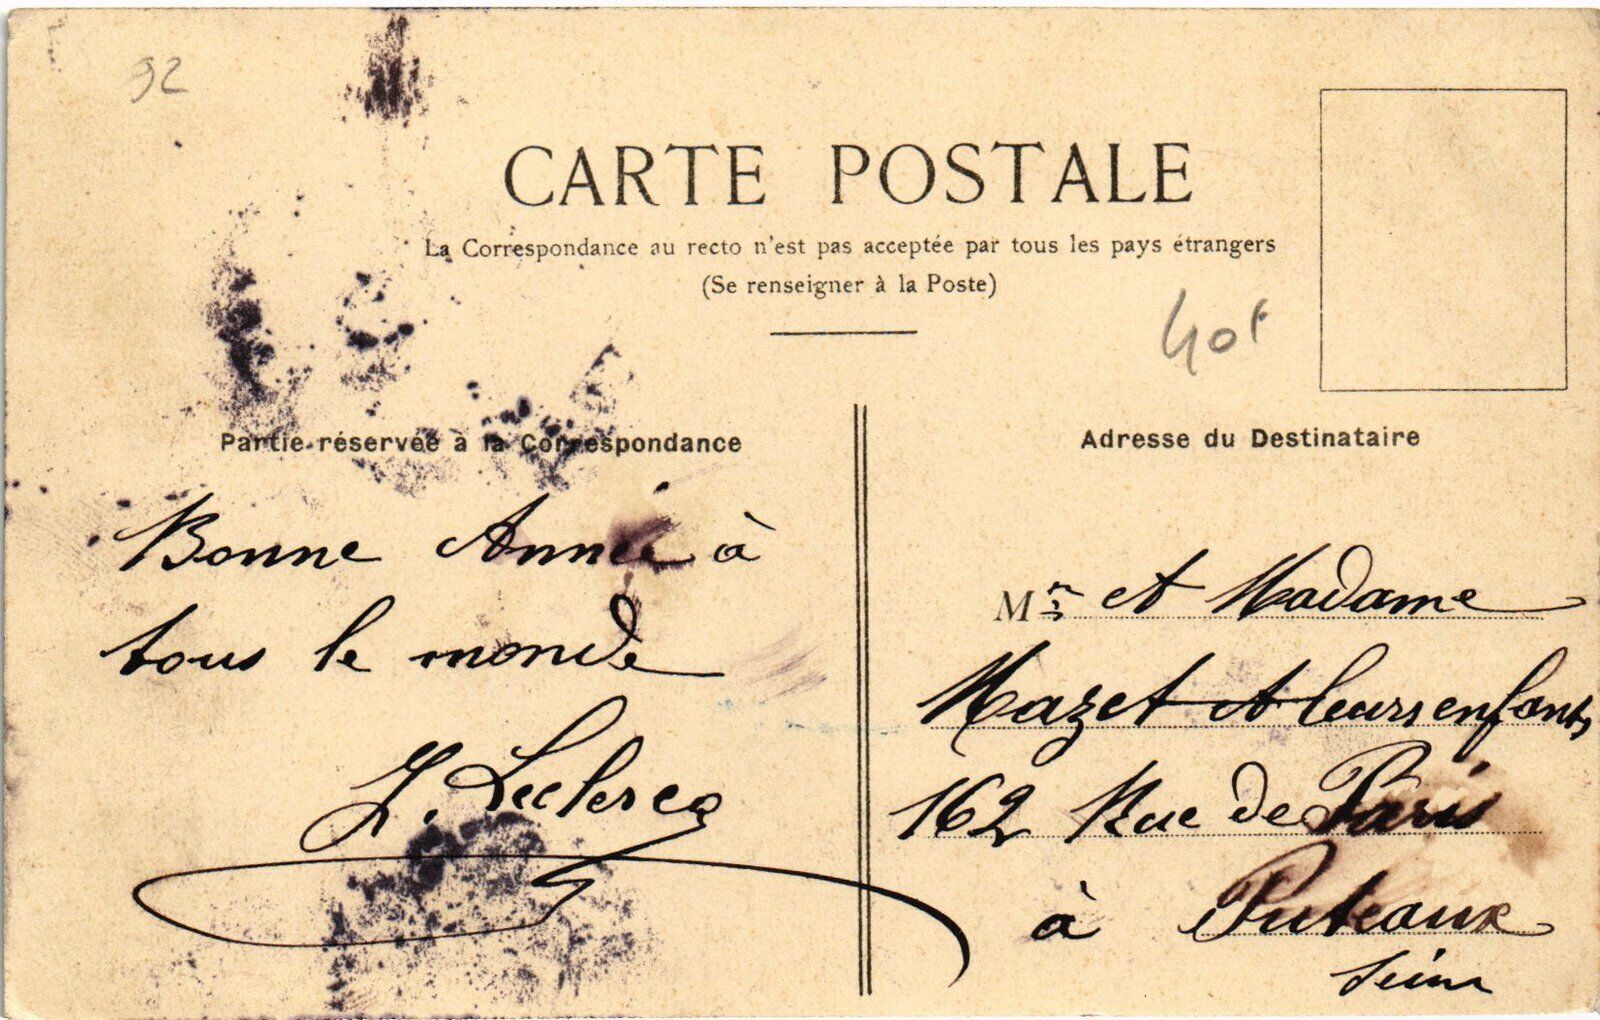 92
CARTE POSTALE
La Correspondance au recto n'est pas acceptée par tous les pays étrangers
(Se renseigner à la Poste)
40F
Partie réservée à la Correspondance
Bonne Année à
tous le monde
Leclercq
Adresse du Destinataire
Mr et Madame
Mazet et leurs enfants
162 Rue de Paris
à Puteaux
Seine